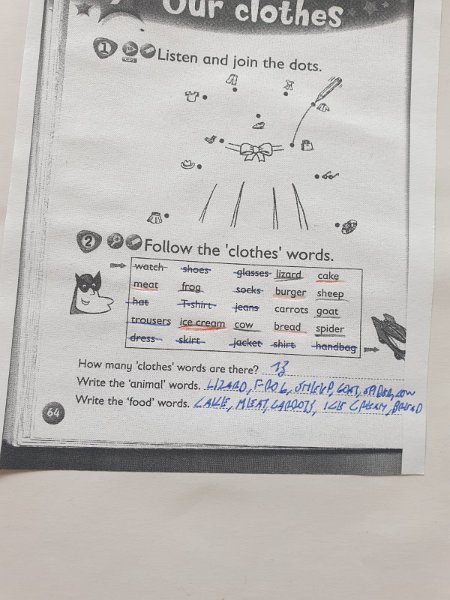 Our clothes
1 Listen and join the dots.
2 Follow the 'clothes' words.
watch shoes glasses lizard cake
meat frog socks burger sheep
hat T-shirt jeans carrots goat
trousers ice cream cow bread spider
dress skirt jacket shirt handbag
How many 'clothes' words are there? 13
Write the 'animal' words. LIZARD, FROG, SHEEP, GOAT, SPIDER, COW
Write the 'food' words. CAKE, MEAT, CARROTS, ICE CREAM, BREAD
64